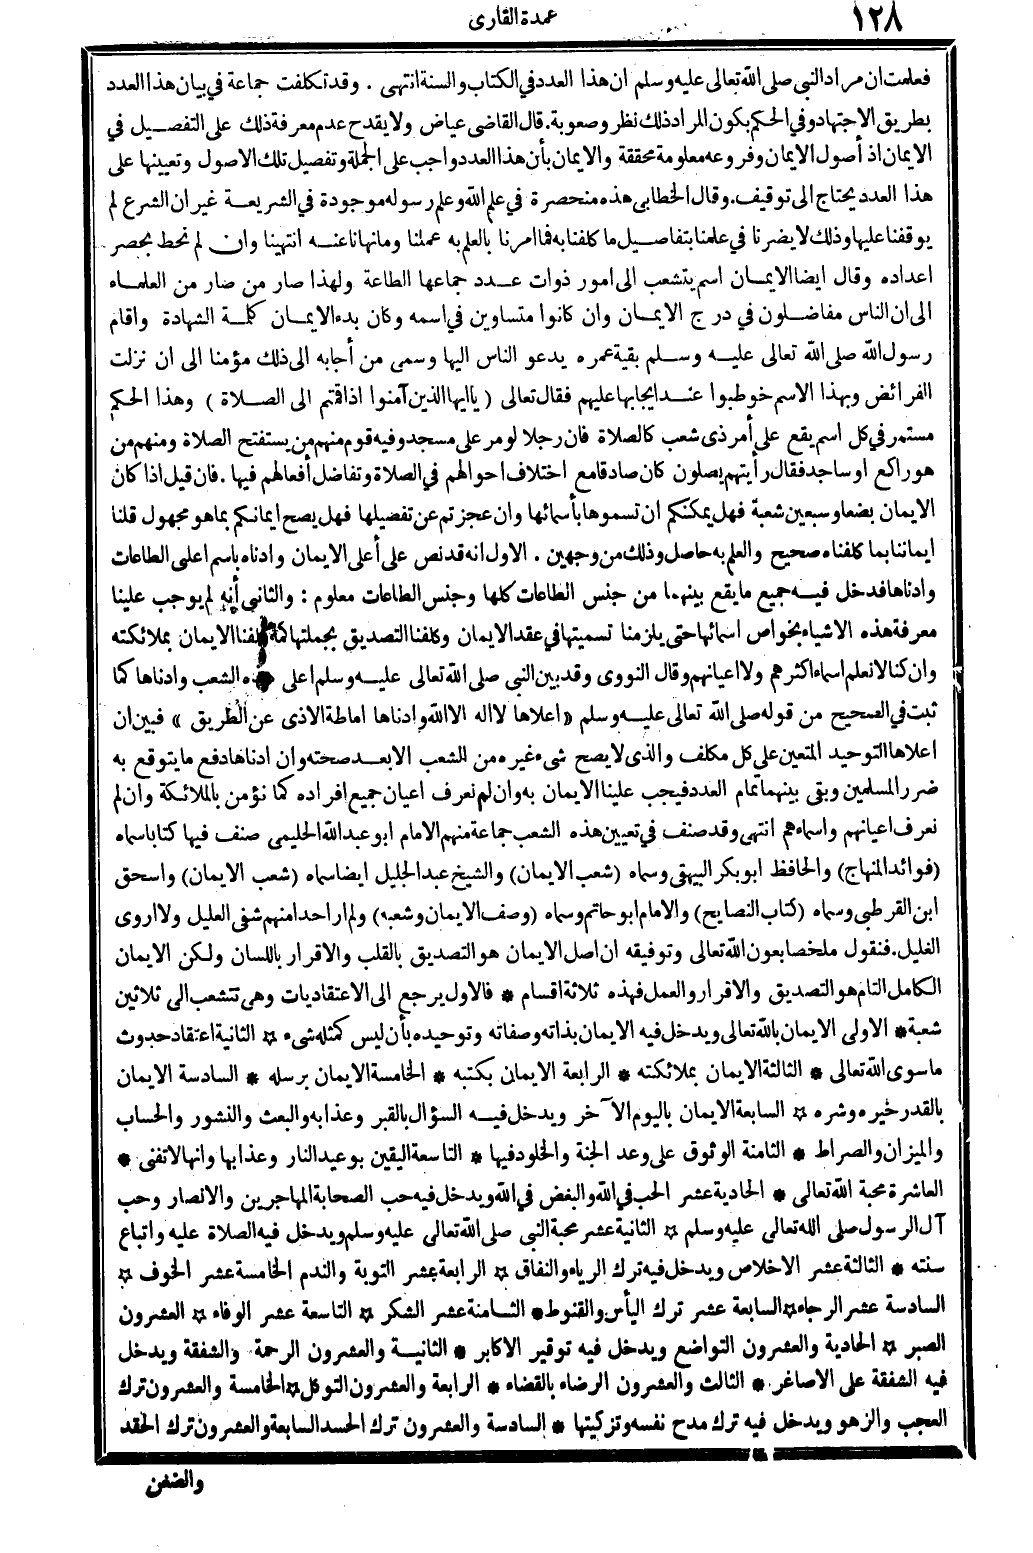 ١٢٨
عمدة القارى
فعلمت ان مراد النبى صلى الله تعالى عليه وسلم ان هذا العدد فى الكتاب والسنة انتهى . وقد تكلفت جماعة فى بيان هذا العدد
بطريق الاجتهاد وفى الحكم بكون المراد ذلك نظر وصعوبة. قال القاضى عياض ولا يقدح عدم معرفة ذلك على التفصيل فى
الايمان اذ أصول الايمان وفروعه معلومة محققة والايمان بأن هذا العدد واجب على الجملة وتفصيل تلك الاصول وتعيينها على
هذا العدد يحتاج الى توقيف. وقال الخطابى هذه منحصرة فى علم الله وعلم رسوله موجودة فى الشريعة غير ان الشرع لم
يوقفنا عليها وذلك لا يضرنا فى علمنا بتفاصيل ما كلفنا به فما امرنا بالعلم به عملنا وما نهانا عنه انتهينا وان لم نحط بحصر
اعداده وقال ايضا الايمان اسم يتشعب الى امور ذوات عدد جماعها الطاعة ولهذا صار من صار من العلماء
الى ان الناس مفاضلون فى درج الايمان وان كانوا متساوين فى اسمه وكان بدء الايمان كلمة الشهادة واقام
رسول الله صلى الله تعالى عليه وسلم بقية عمره يدعو الناس اليها وسمى من أجابه الى ذلك مؤمنا الى ان نزلت
الفرائض وبهذا الاسم خوطبوا عند ايجابها عليهم فقال تعالى ( يا ايها الذين آمنوا اذا قمتم الى الصلاة ) وهذا الحكم
مستمر فى كل اسم يقع على أمر ذى شعب كالصلاة فان رجلا لو مر على مسجد وفيه قوم منهم من يستفتح الصلاة ومنهم من
هو راكع او ساجد فقال رأيتهم يصلون كان صادقا مع اختلاف احوالهم فى الصلاة وتفاضل أفعالهم فيها . فان قيل اذا كان
الايمان بضعا وسبعين شعبة فهل يمكنكم ان تسموها بأسمائها وان عجزتم عن تفصيلها فهل يصح ايمانكم بما هو مجهول قلنا
ايماننا بما كلفناه صحيح والعلم به حاصل وذلك من وجهين . الاول انه قد نص على أعلى الايمان وادناه باسم اعلى الطاعات
وادناها فدخل فيه جميع ما يقع بينهما من جنس الطاعات كلها وجنس الطاعات معلوم : والثانى أنه لم يوجب علينا
معرفة هذه الاشياء بخواص اسمائها حتى يلزمنا تسميتها فى عقد الايمان وكلفنا التصديق بجملتها كما كلفنا الايمان بملائكته
وان كنا لا نعلم اسماء اكثرهم ولا اعيانهم وقال النووى وقد بين النبى صلى الله تعالى عليه وسلم اعلى هذه الشعب وادناها كما
ثبت فى الصحيح من قوله صلى الله تعالى عليه وسلم « اعلاها لا اله الا الله وادناها اماطة الاذى عن الطريق » فبين ان
اعلاها التوحيد المتعين على كل مكلف والذى لا يصح شىء غيره من الشعب الا بعد صحته وان ادناها دفع ما يتوقع به
ضرر المسلمين وبقى بينهما تمام العدد فيجب علينا الايمان به وان لم نعرف اعيان جميع افراده كما نؤمن بالملائكة وان لم
نعرف اعيانهم واسماءهم انتهى وقد صنف فى تعيين هذه الشعب جماعة منهم الامام ابو عبد الله الحليمى صنف فيها كتابا سماه
(فوائد المنهاج) والحافظ ابو بكر البيهقى وسماه (شعب الايمان) والشيخ عبد الجليل ايضا سماه (شعب الايمان) واسحق
ابن القرطبى وسماه (كتاب النصايح) والامام ابو حاتم وسماه (وصف الايمان وشعبه) ولم ار احدا منهم شفى العليل ولا اروى
الغليل. فنقول ملخصا بعون الله تعالى وتوفيقه ان اصل الايمان هو التصديق بالقلب والاقرار باللسان ولكن الايمان
الكامل التام هو التصديق والاقرار والعمل فهذه ثلاثة اقسام * فالاول يرجع الى الاعتقاديات وهى تتشعب الى ثلاثين
شعبة * الاولى الايمان بالله تعالى ويدخل فيه الايمان بذاته وصفاته وتوحيده بأن ليس كمثله شىء * الثانية اعتقاد حدوث
ما سوى الله تعالى * الثالثة الايمان بملائكته * الرابعة الايمان بكتبه * الخامسة الايمان برسله * السادسة الايمان
بالقدر خيره وشره * السابعة الايمان باليوم الآخر ويدخل فيه السؤال بالقبر وعذابه والبعث والنشور والحساب
والميزان والصراط * الثامنة الوثوق على وعد الجنة والخلود فيها * التاسعة اليقين بوعيد النار وعذابها وانها لا تفنى *
العاشرة محبة الله تعالى * الحادية عشر الحب فى الله والبغض فى الله ويدخل فيه حب الصحابة المهاجرين والانصار وحب
آل الرسول صلى الله تعالى عليه وسلم * الثانية عشر محبة النبى صلى الله تعالى عليه وسلم ويدخل فيه الصلاة عليه واتباع
سنته * الثالثة عشر الاخلاص ويدخل فيه ترك الرياء والنفاق * الرابعة عشر التوبة والندم الخامسة عشر الخوف *
السادسة عشر الرجاء * السابعة عشر ترك اليأس والقنوط * الثامنة عشر الشكر * التاسعة عشر الوفاء * العشرون
الصبر * الحادية والعشرون التواضع ويدخل فيه توقير الاكابر * الثانية والعشرون الرحمة والشفقة ويدخل
فيه الشفقة على الاصاغر * الثالث والعشرون الرضاء بالقضاء * الرابعة والعشرون التوكل * الخامسة والعشرون ترك
العجب والزهو ويدخل فيه ترك مدح نفسه وتزكيتها * السادسة والعشرون ترك الحسد السابعة والعشرون ترك الحقد
والضغن